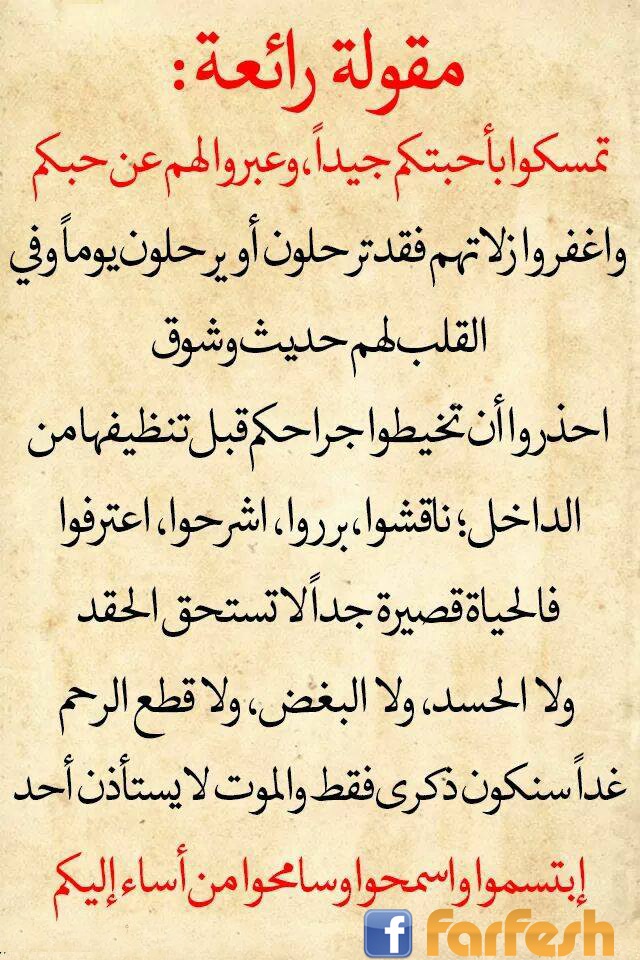 مقولة رائعة :
تمسكوا بأحبتكم جيداً، وعبروا لهم عن حبكم
واغفروا زلاتهم فقد ترحلون أو يرحلون يوماً وفي
القلب لهم حديث وشوق
احذروا أن تخيطوا جراحكم قبل تنظيفها من
الداخل؛ ناقشوا، برروا، اشرحوا، اعترفوا
فالحياة قصيرة جداً لا تستحق الحقد
ولا الحسد، ولا البغض، ولا قطع الرحم
غداً سنكون ذكرى فقط والموت لا يستأذن أحد
إبتسموا واسمحوا وسامحوا من أساء إليكم
f farfesh